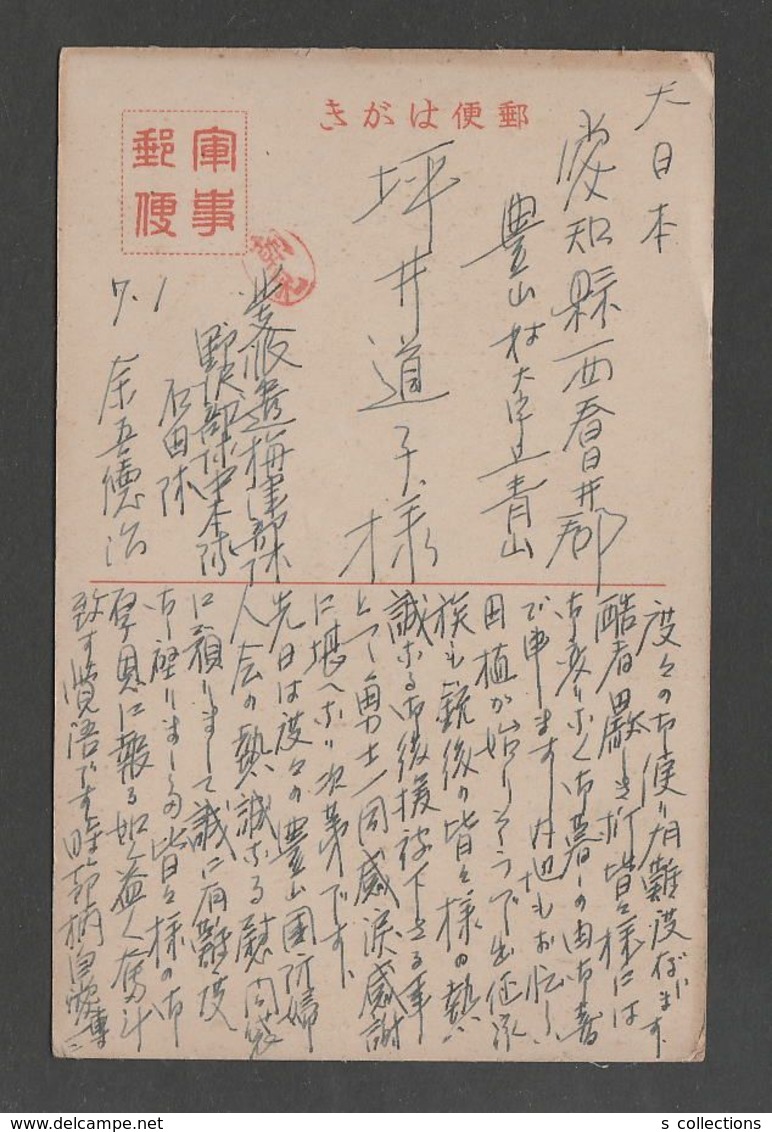 郵便はがき
軍事
郵便
大日本
愛知縣西春日井郡
豊山村大字青山
坪井道子様
北支派遣梅津部隊
野伏部隊中本隊
石田隊
7.1
余吾德治
度々の御便り有難度ございます
酷暑嚴しき折皆々様には
御変りなく御暮しの由御喜
び申します 内地もお忙しい
田植が始りそうで出征家
族も銃後の皆々様の熱
誠なる御後援被下さる事
とて勇士一同感涙感謝
に堪へない次第です、
先日は度々の豊山国防婦
人会の熱誠なる慰問袋
に預りまして誠に有難度
御座りました 皆々様の御
厚恩に報る如く益々奮斗
致す覚悟です 時節柄自愛専一
s collections